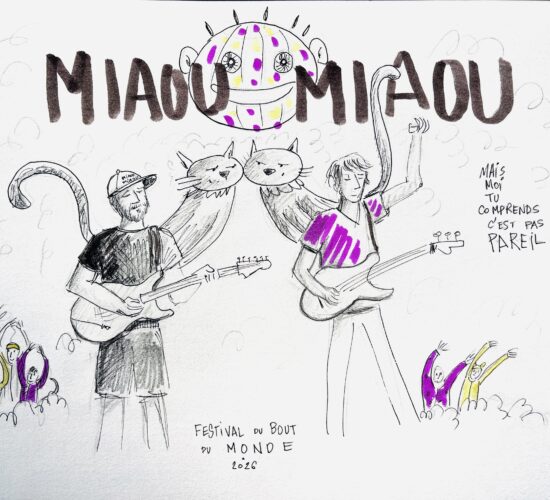 MIAOU MIAOU
MAIS
MOI
TU
COMPRENDS
C'EST PAS
PAREIL
FESTIVAL DU BOUT
DU MONDE
2026